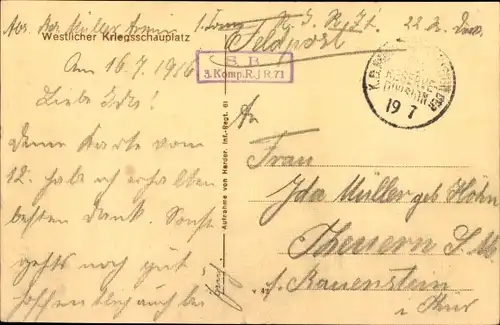 Abs. Müller Armin 1. Komp. R. J. R. 71. 22. R. Div.
Westlicher Kriegsschauplatz
Feldpost
S. B.
3. Komp. R. J R. 71
RESERVE-
DIVISION
19 7
Am 16.7.1916
Liebe Ida!
Deine Karte vom
12. hab ich erhalten
besten Dank. Sonst
gehts noch gut
hoffentlich auch bei
Aufnahme von Harder, Inf.-Regt. 81
An
Frau
Ida Müller geb Höhn
Theuern S. M.
b. Rauenstein
i Thür